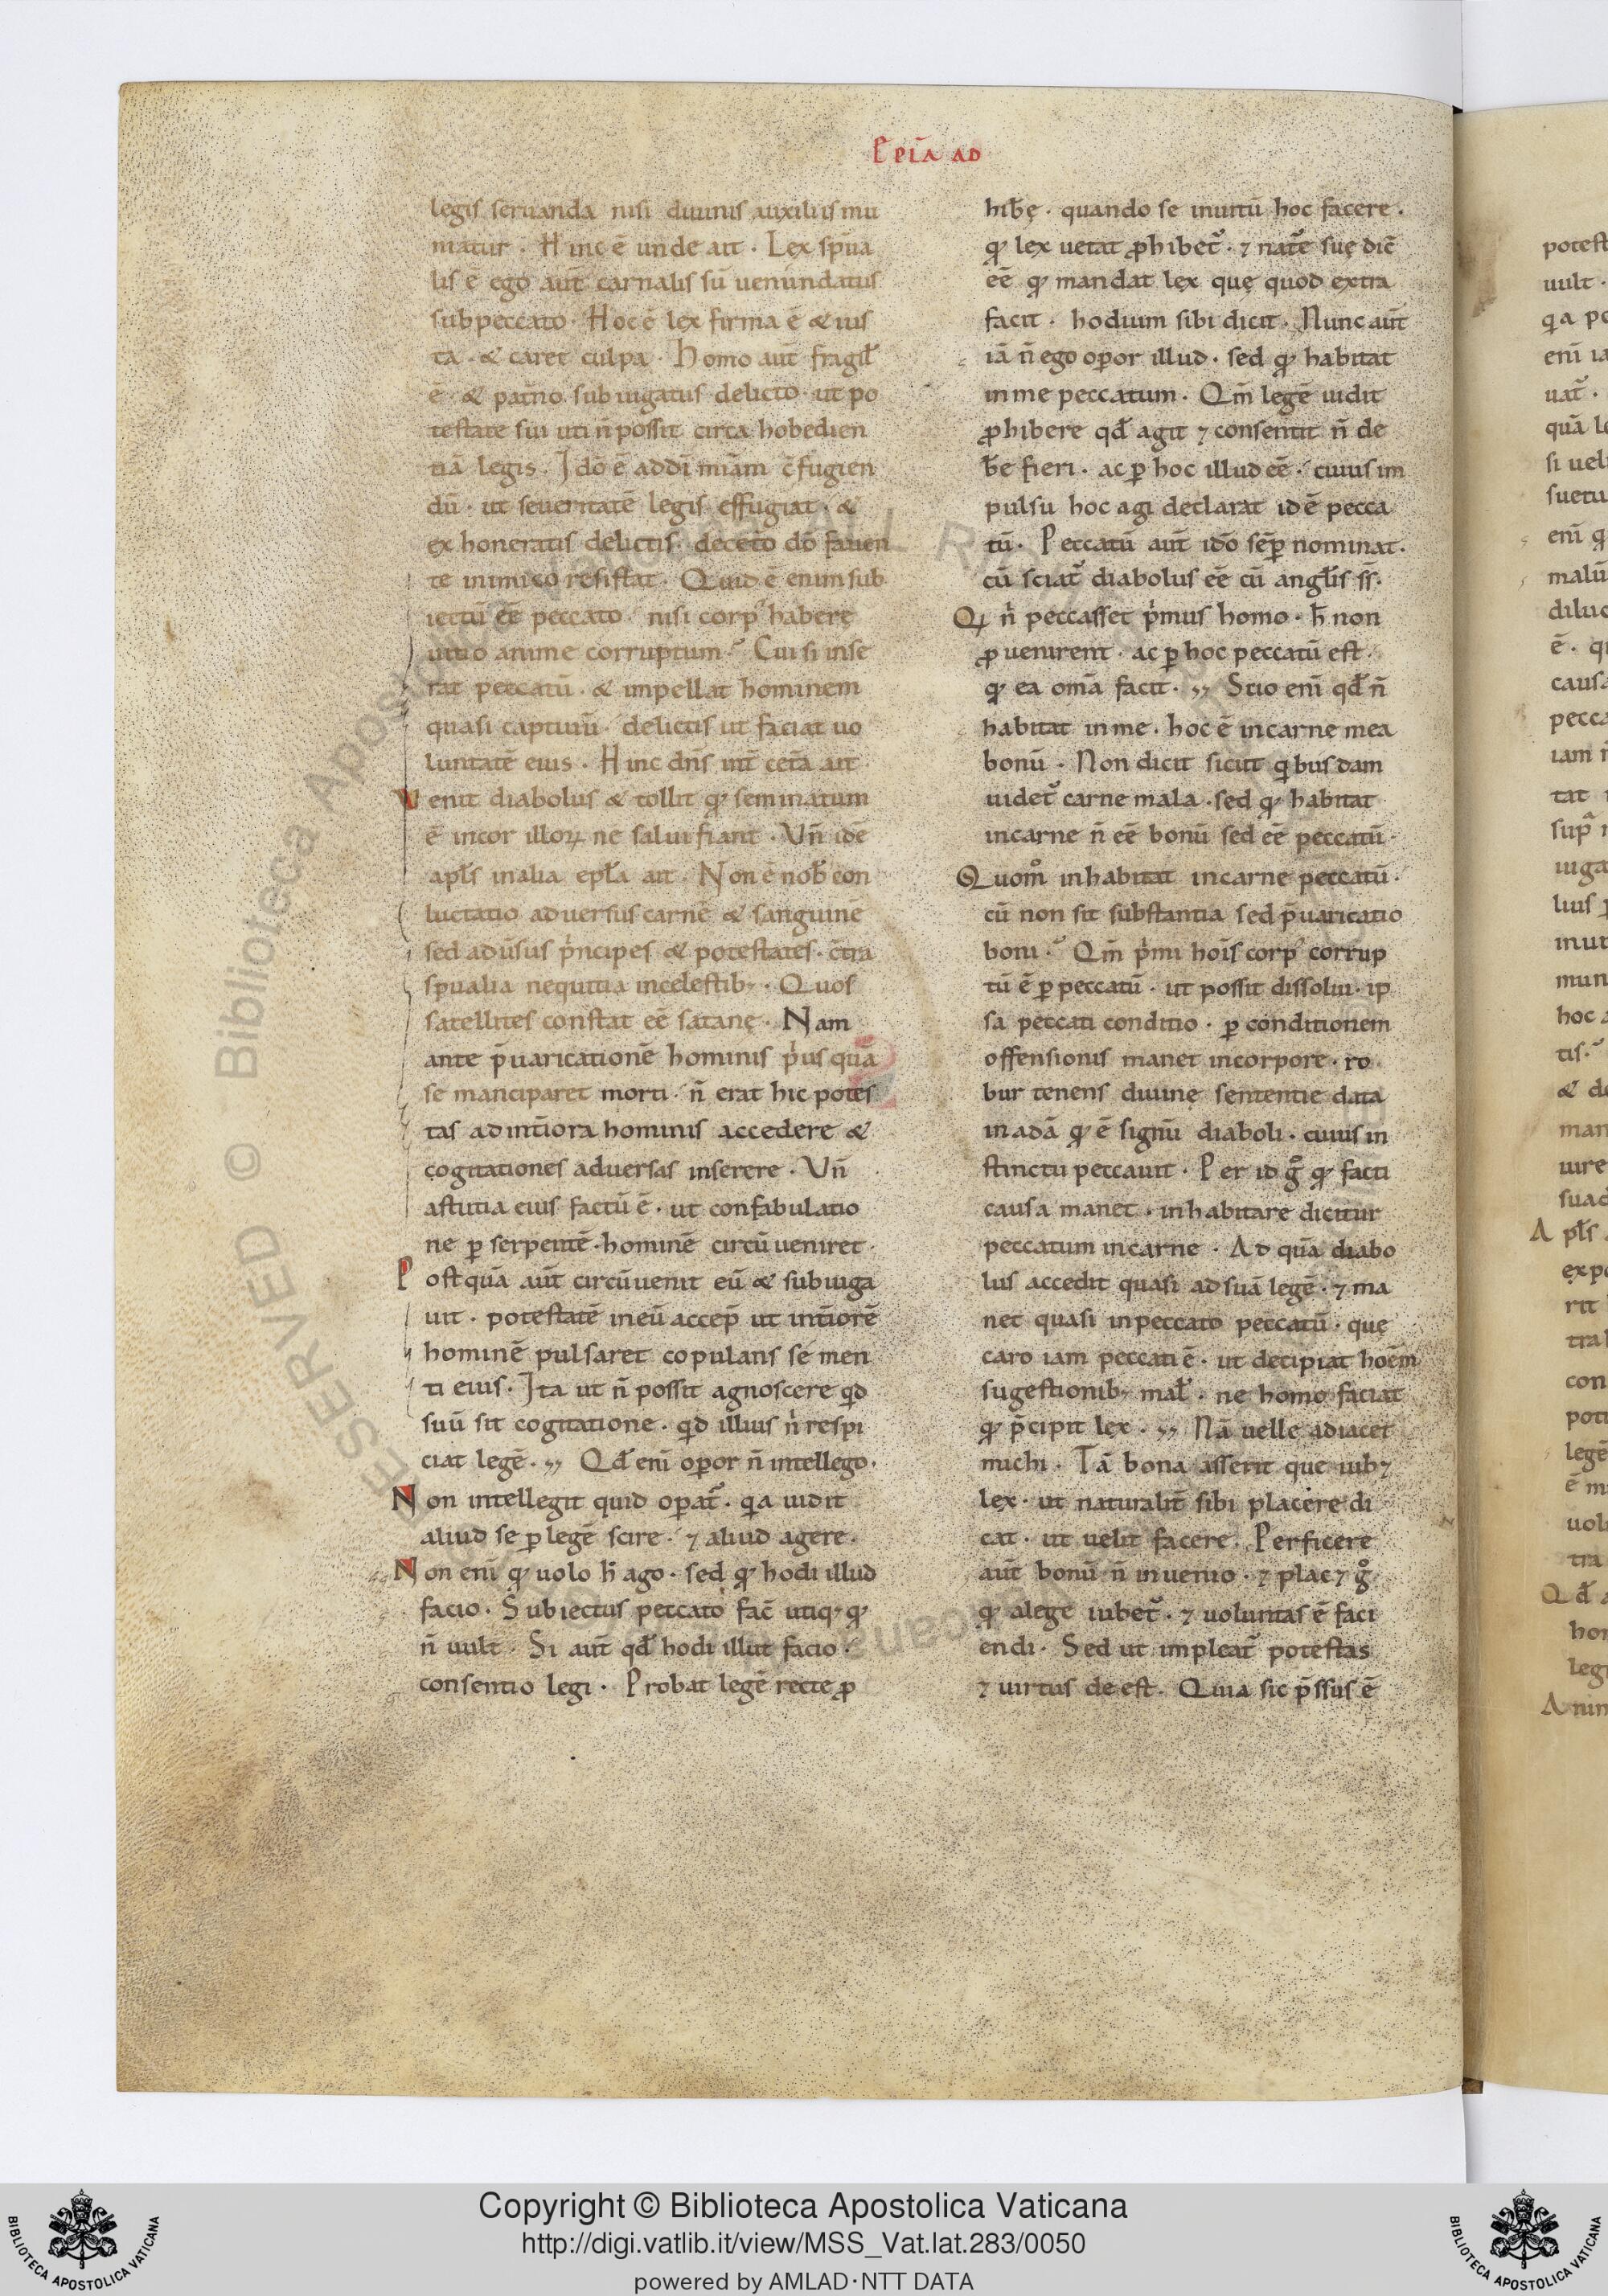 Epĩa ad
legis seruanda nisi diuinis auxiliis mu
niatur · Hinc ē unde ait · Lex sp̄ua
lis ē ego aut̄ carnalis sū uenundatus
sub peccato · Hoc ē lex firma ē & ius
ta · & caret culpa · Homo aut̄ fragil̄
ē · & pat̄no subiugatus delicto · ut po
testate sui uti n̄ possit circa hobedien
tiā legis · Ido̅ ē ad dī miām c̄fugien
dū · ut seueritatē legis effugiat · &
exhoneratis delictis · decet̄o dō fauen
te inimico resistat · Quid ē enim sub
iectū eē peccato · nisi corp᾿ habere
uitio anime corruptum · Cui si inse
rat peccatū · & impellat hominem
quasi captiuū · delictis ut faciat uo
luntatē eius · Hinc dn̄s int̄ cetā ait ·
Uenit diabolus & tollit qꝫ seminatum
ē in cor illoꝝ ne salui fiant · Vn̄ idē
apl̄s in alia epl̄a ait · Non ē nob̄ con
luctatio aduersus carnē & sanguinē
sed adūsus p̓ncipes & potestates · c̄tra
sp̄ualia nequitia in celestibꝫ · Quos
satellites constat eē satanę · Nam
ante p̄uaricationē hominis p̓us quā
se manciparet morti · n̄ erat hic potes
tas ad int̄iora hominis accedere &
cogitationes aduersas inserere · Vn̄
astutia eius factū ē · ut confabulatio
ne ꝑ serpentē · hominē circūueniret ·
Postquā aut̄ circūuenit eū & subiuga
uit · potestatē in eū accep̄ ut int̄iorē
hominē pulsaret copulans se men
ti eius · Ita ut n̄ possit agnoscere qd
suū sit cogitatione · qd illius n̓ respi
ciat legē · Qd̄ enī oꝑor n̄ intellego ·
Non intellegit quid oꝑat᷑ · qa uidit
aliud se ꝑ legē scire · ⁊ aliud agere ·
Non enī qꝫ uolo h̄ ago · sed qꝫ hodi illud
facio · Subiectus peccato fac̄ utiqꝫ qꝫ
n̄ uult · Si aut̄ qd̄ hodi illut facio ·
consentio legi · Probat legē recte ꝓ
hib̄ę · quando se inuitū hoc facere ·
qꝫ lex uetat ꝓhibet᷑ · ⁊ nat᷑e suę dic̄
eē qꝫ mandat lex quę quod extra
facit · hodium sibi dicit · Nunc aut̄
iā n̄ ego oꝑor illud · sed qꝫ habitat
in me peccatum · Qm̄ legē uidit
ꝓhibere qd̄ agit ⁊ consentit n̄ de
b̄e fieri · ac ꝑ hoc illud eē · cuius im
pulsu hoc agi declarat id ē pecca
tū · Peccatū aut̄ idō sēꝑ nominat ·
cū sciat᷑ diabolus eē cū angl̄is ss̄ ·
Qꝫ n̓ peccasset p̓mus homo · h̄ non
ꝓuenirent · ac ꝑ hoc peccatū est ·
qꝫ ea om̄a facit · Scio enī qd̄ n̄
habitat in me · hoc ē in carne mea
bonū · Non dicit sicut qibusdam
uidet᷑ carne mala · sed qꝫ habitat
in carne n̄ eē bonū sed eē peccatū ·
Quom̊ inhabitat in carne peccatū ·
cū non sit substantia sed p̄uaricatio
boni · Qm̄ p̓mi hois̄ corp᾿ corrup
tū ē ꝑ peccatū · ut possit dissolui · ip
sa peccati conditio · ꝑ conditionem
offensionis manet in corpore · ro
bur tenens diuinę sententie data
in adā qꝫ ē signū diaboli · cuius in
stinctu peccauit · Per id g̊ qꝫ facti
causa manet · inhabitare dicitur
peccatum in carne · Ad quā diabo
lus accedit quasi ad suā legē · ⁊ ma
net quasi in peccato peccatū · quę
caro iam peccati ē · ut decipiat hoēm
sugestionibꝫ mal̄ · ne homo faciat
qꝫ p̄cipit lex · Nā uelle adiacet
michi · Tā bona asserit que iubꝫ
lex · ut naturalit̄ sibi placere di
cat · ut uelit facere · Perficere
aut̄ bonū n̄ inuenio · ⁊ placꝫ g̊
qꝫ a lege iubet᷑ · ⁊ uoluntas ē faci
endi · Sed ut impleat᷑ potestas
⁊ uirtus deest · Quia sic p̄ssus ē
Copyright © Biblioteca Apostolica Vaticana
http://digi.vatlib.it/view/MSS_Vat.lat.283/0050
powered by AMLAD·NTT DATA
BIBLIOTECA APOSTOLICA VATICANA
BIBLIOTECA APOSTOLICA VATICANA